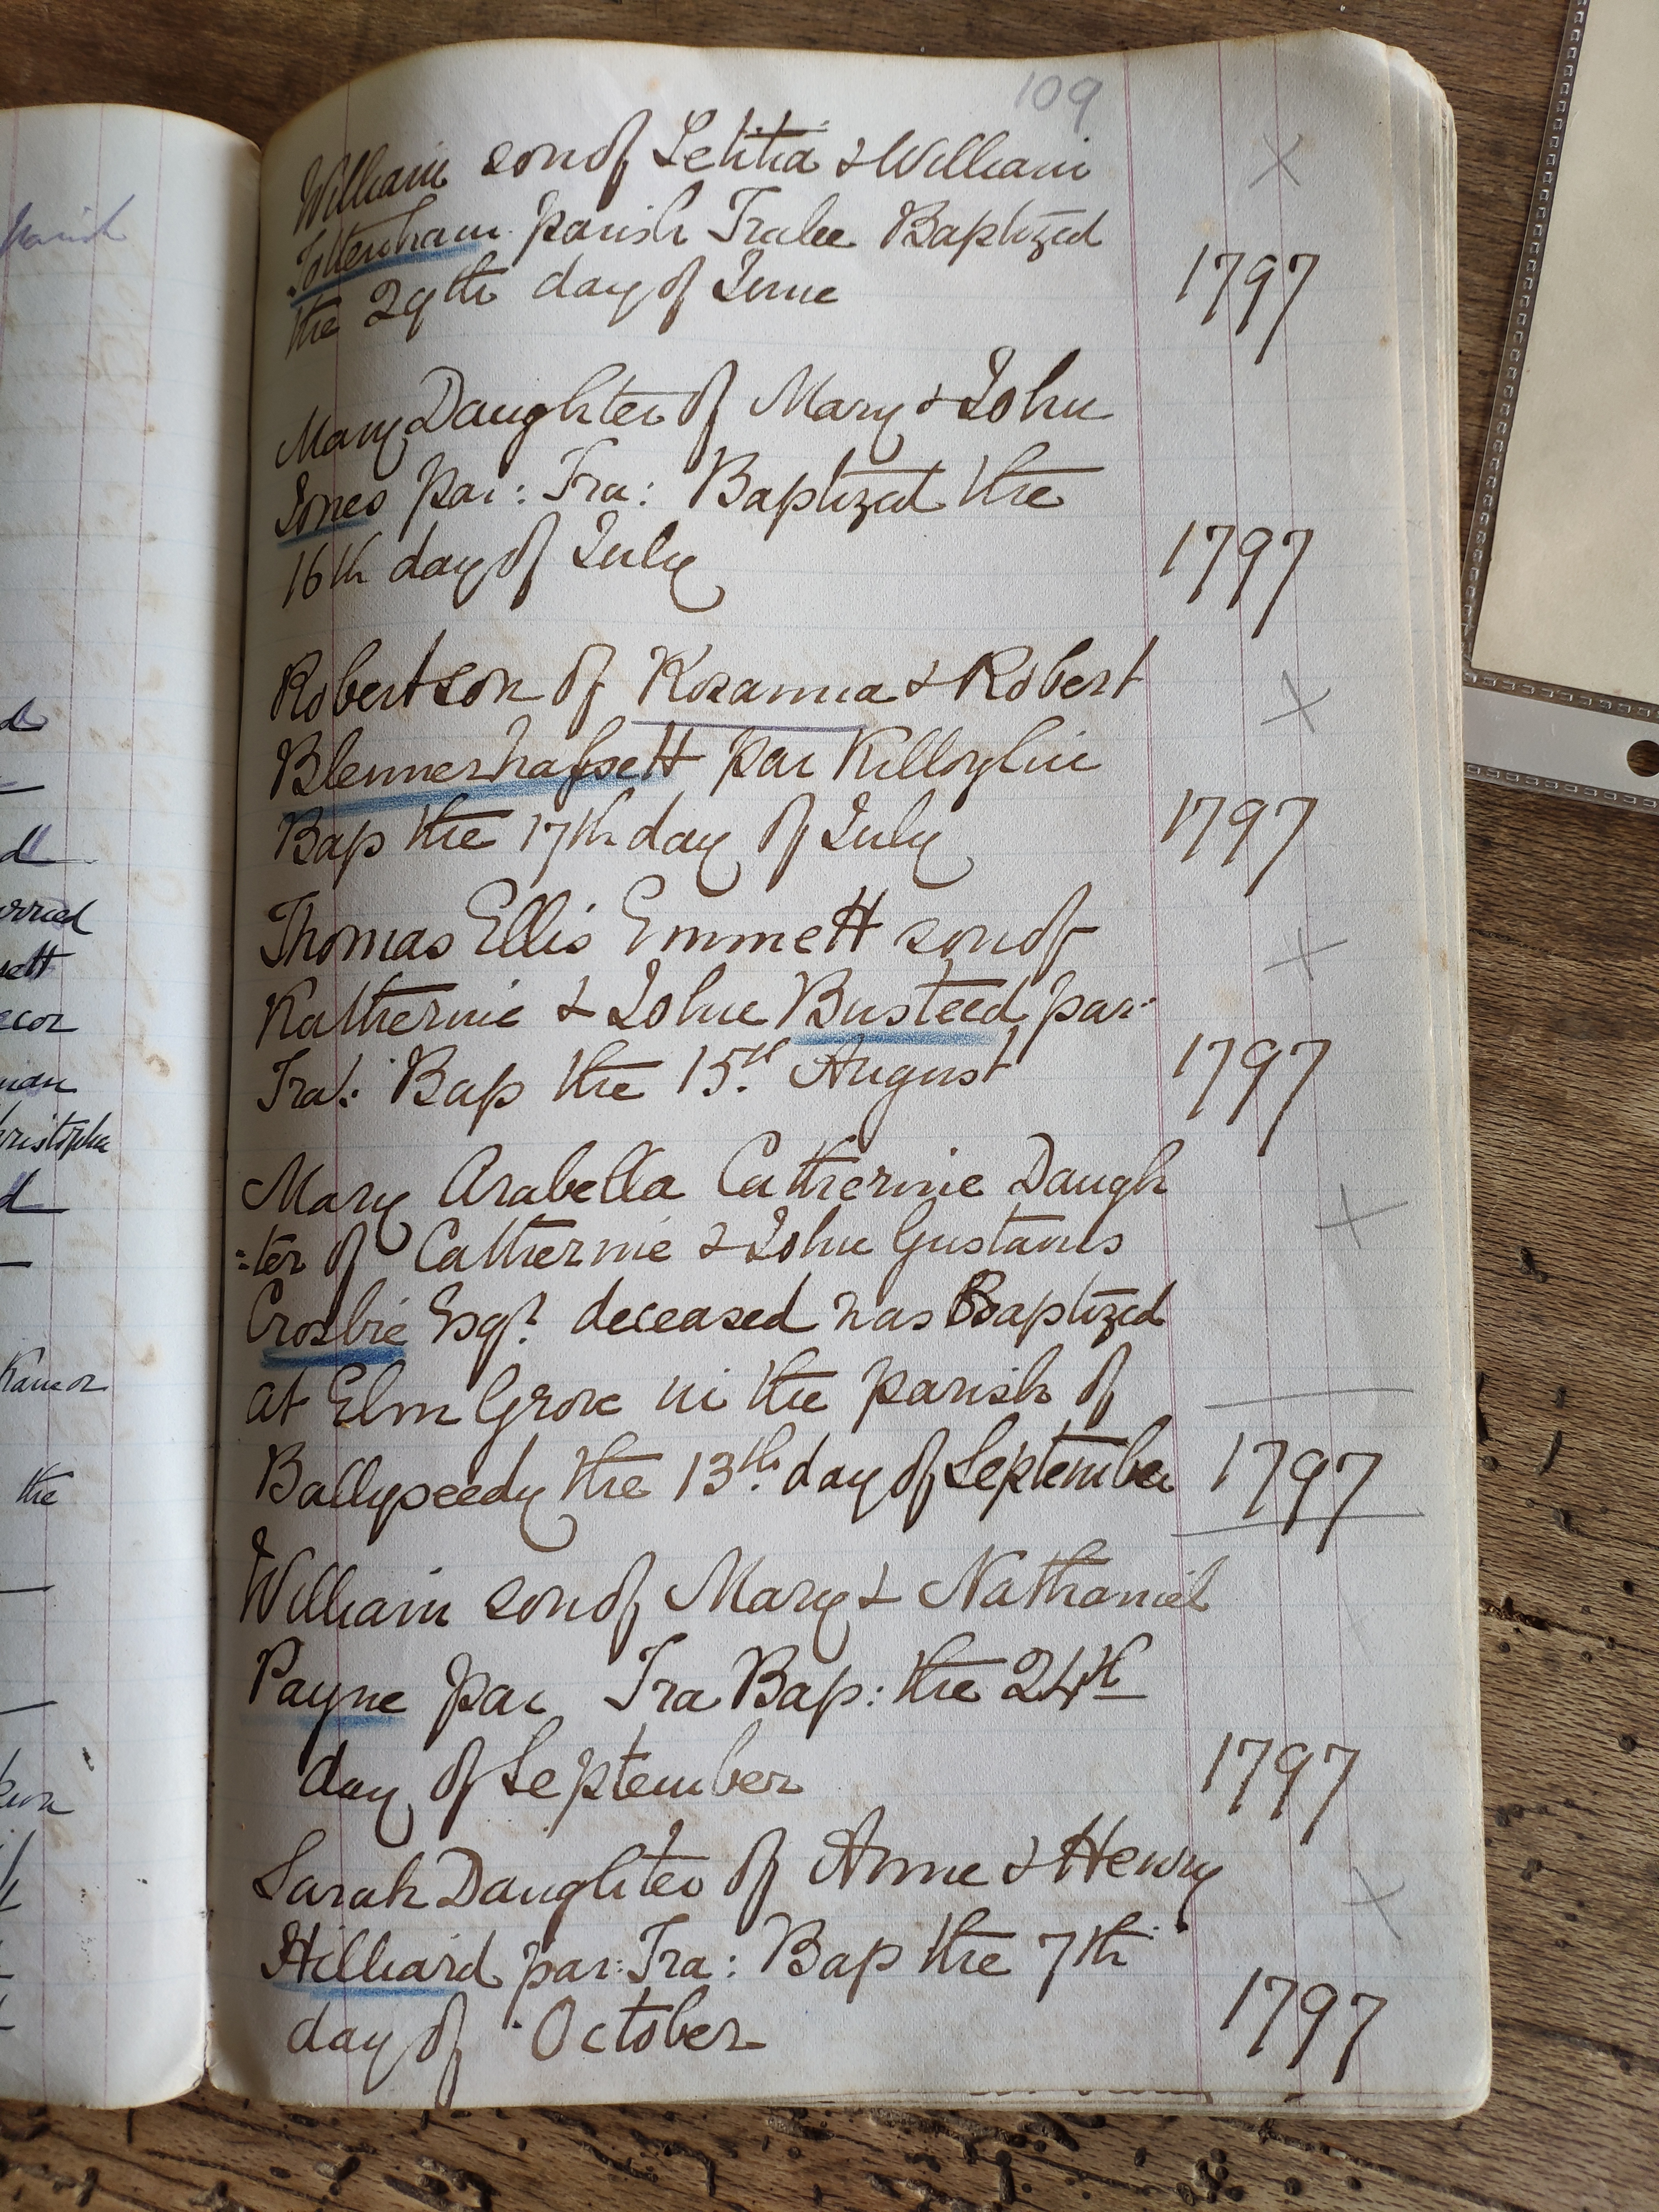 109
William son of Letitia & William
Tottenham parish Tralee Baptized
the 29th day of June 1797
Mary Daughter of Mary & John
Jones par: Tra: Baptized the
16th day of July 1797
Robert son of Rosanna & Robert
Blennerhassett par Killorglin
Bap the 17th day of July 1797
Thomas Ellis Emmett son of
Katherine & John Busteed par:
Tra: Bap the 15th August 1797
Mary Arabella Catherine Daugh
:ter of Catherine & John Gustavus
Crosbie Esqr. deceased was Baptized
at Elm Grove in the parish of
Ballyseedy the 13th. day of September 1797
William son of Mary & Nathaniel
Payne par Tra Bap: the 24th
day of September 1797
Sarah Daughter of Anne & Henry
Hilliard par: Tra: Bap the 7th
day of October 1797